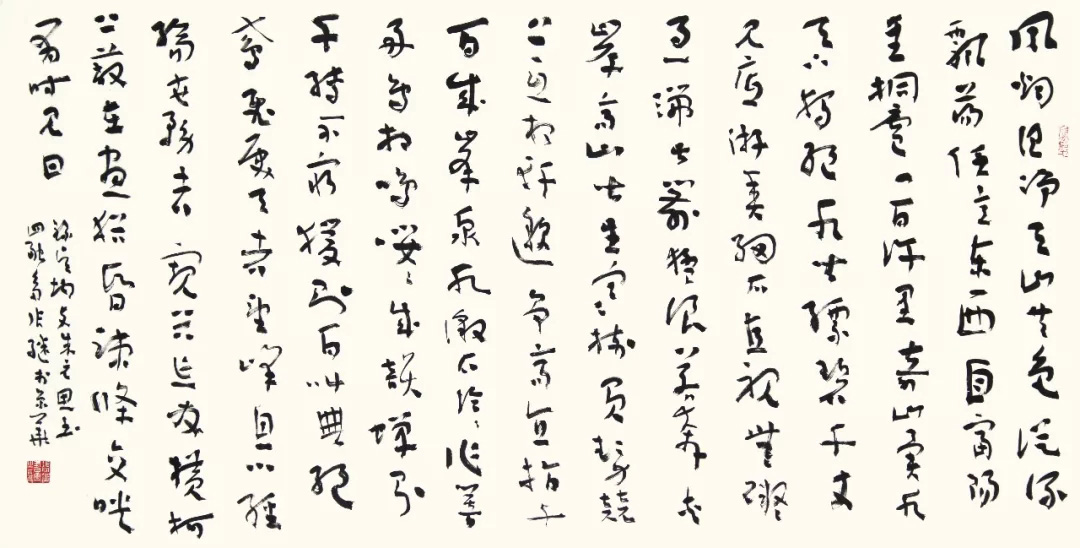 風烟俱净天山共色從流
飄蕩任意東西自富陽
至桐廬一百許里奇山異水
天下獨絕水皆縹碧千丈
見底游魚細石直視無礙
急湍甚箭猛浪若奔夾
岸高山皆生寒樹負勢競
上互相軒邈爭高直指千
百成峰泉水激石泠泠作響
好鳥相鳴嚶嚶成韻蟬則
千轉不窮猨則百叫無絕
鳶飛戾天者望峰息心經
綸世務者窺谷忘反橫柯
上蔽在晝猶昏疎條交映
有時見日
錄吳均與朱元思書
張繼於京華